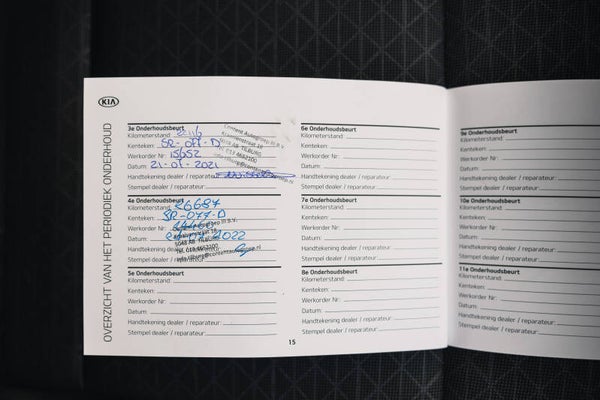 KIA
OVERZICHT VAN HET PERIODIEK ONDERHOUD
3e Onderhoudsbeurt
Kilometerstand:
Kenteken: SR-077-D
Werkorder Nr: 15652
Datum: 21-01-2021
Handtekening dealer / reparateur:
Stempel dealer / reparateur:
Content Autogroep III B.V.
Kraaivenstraat 18
5048 AB TILBURG
4e Onderhoudsbeurt
Kilometerstand: 26684
Kenteken: SR-077-D
Werkorder Nr:
Datum: 2022
Handtekening dealer / reparateur:
Stempel dealer / reparateur:
5048 AB TILBURG
5e Onderhoudsbeurt
Kilometerstand:
Kenteken:
Werkorder Nr:
Datum:
Handtekening dealer / reparateur:
Stempel dealer / reparateur:
6e Onderhoudsbeurt
Kilometerstand:
Kenteken:
Werkorder Nr:
Datum:
Handtekening dealer / reparateur:
Stempel dealer / reparateur:
7e Onderhoudsbeurt
Kilometerstand:
Kenteken:
Werkorder Nr:
Datum:
Handtekening dealer / reparateur:
Stempel dealer / reparateur:
8e Onderhoudsbeurt
Kilometerstand:
Kenteken:
Werkorder Nr:
Datum:
Handtekening dealer / reparateur:
Stempel dealer / reparateur:
15
9e Onderhoudsbeurt
Kilometerstand:
Kenteken:
Werkorder Nr:
Datum:
Handtekening dealer / reparateur:
Stempel dealer / reparateur:
10e Onderhoudsbeurt
Kilometerstand:
Kenteken:
Werkorder Nr:
Datum:
Handtekening dealer / reparateur:
Stempel dealer / reparateur:
11e Onderhoudsbeurt
Kilometerstand:
Kenteken:
Werkorder Nr:
Datum:
Handtekening dealer / reparateur:
Stempel dealer / reparateur: